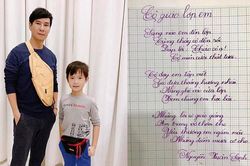 Cô giáo lớp em
Sáng nào em đến lớp
Cũng thấy cô đến rồi
Đáp lời "Chào cô ạ!"
Cô mỉm cười thật tươi.
Cô dạy em tập viết
Gió đưa thoảng hương nhài
Nắng ghé vào cửa lớp
Xem chúng em học bài.
Những lời cô giáo giảng
Ấm trang vở thơm tho
Yêu thương em ngắm mãi
Những điểm mười cô cho.
Nguyễn Xuân Sanh